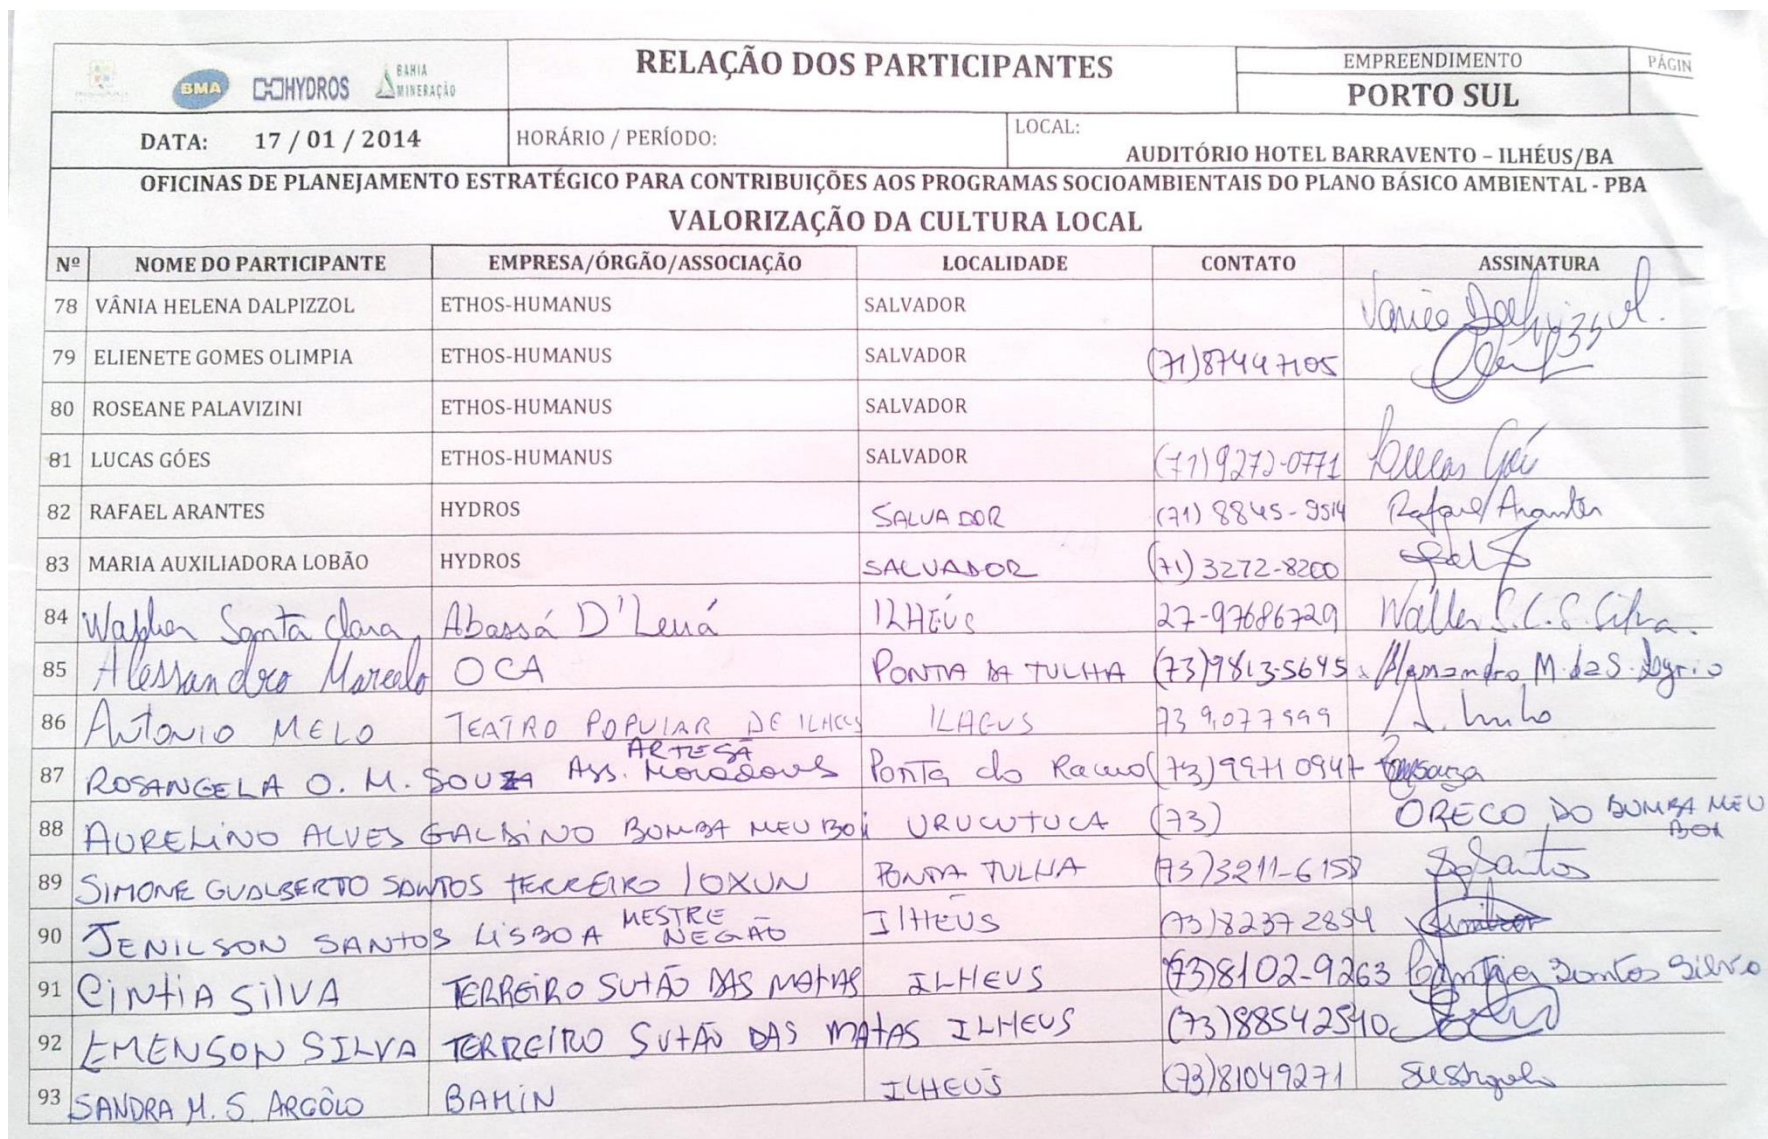 BMA HYDROS BAHIA MINERAÇÃO
RELAÇÃO DOS PARTICIPANTES
EMPREENDIMENTO PÁGIN
PORTO SUL
DATA: 17 / 01 / 2014 HORÁRIO / PERÍODO: LOCAL:
AUDITÓRIO HOTEL BARRAVENTO – ILHÉUS/BA
OFICINAS DE PLANEJAMENTO ESTRATÉGICO PARA CONTRIBUIÇÕES AOS PROGRAMAS SOCIOAMBIENTAIS DO PLANO BÁSICO AMBIENTAL - PBA
VALORIZAÇÃO DA CULTURA LOCAL
Nº NOME DO PARTICIPANTE EMPRESA/ÓRGÃO/ASSOCIAÇÃO LOCALIDADE CONTATO ASSINATURA
78 VÂNIA HELENA DALPIZZOL ETHOS-HUMANUS SALVADOR
79 ELIENETE GOMES OLIMPIA ETHOS-HUMANUS SALVADOR (71)87447105
80 ROSEANE PALAVIZINI ETHOS-HUMANUS SALVADOR
81 LUCAS GÓES ETHOS-HUMANUS SALVADOR (71)9272-0771 Lucas Góes
82 RAFAEL ARANTES HYDROS SALVADOR (71) 8845-9514 Rafael Arantes
83 MARIA AUXILIADORA LOBÃO HYDROS SALVADOR (71) 3272-8200
84 Santa Clara Abassá D'Lewá ILHÉUS 27-97686729 S.C.S. Silva.
85 Alessandro Marcelo OCA PONTA DA TULHA (73)9813-5645 Alessandro M. da S.
86 ANTONIO MELO TEATRO POPULAR DE ILHEUS ILHEUS 73 9,077999
87 ROSANGELA O. M. SOUZA ARTESÃ Ass. Moradores Ponta do Ramo (73)99710947
88 AURELINO ALVES GALDINO BUMBA MEU BOI URUCUTUCA (73) ORECO DO BUMBA MEU BOI
89 SIMONE GUALBERTO SANTOS TERREIRO IOXUN PONTA TULHA (73)3211-6158 Santos
90 JENILSON SANTOS LISBOA MESTRE NEGÃO ILHEUS (73)82372854
91 CINTIA SILVA TERREIRO SUTÃO DAS MATAS ILHEUS (73)8102-9263 Santos Silva
92 EMENSON SILVA TERREIRO SUTÃO DAS MATAS ILHEUS (73)88542540
93 SANDRA M. S. ARGÔLO BAMIN ILHEUS (73)81049271